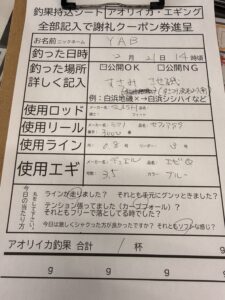 釣果持込シート アオリイカ・エギング
全部記入で謝礼クーポン券進呈
お名前 ニックネーム YAB
釣った日時 2月21日 14時頃
釣った場所 ☑公開OK □公開NG
詳しく記入
例:白浜地磯×→白浜シシバイなど
使用ロッド メーカー
使用リール メーカー 3000
使用ライン 号 0.8 1.8
使用エギ メーカー デュエル エビQ
号数 3.5 カラー ブルー
今日の当たり方 丸をして下さい。
ラインが走りました? それとも手元にグンッときました?
テンション張ってました(カーブフォール)?
それともフリーで落としてる時でした?
今日は激しくシャクった方が良かったですか? それともソフトな感じ?
アオリイカ釣果 合計 1 杯
g g g
g g g